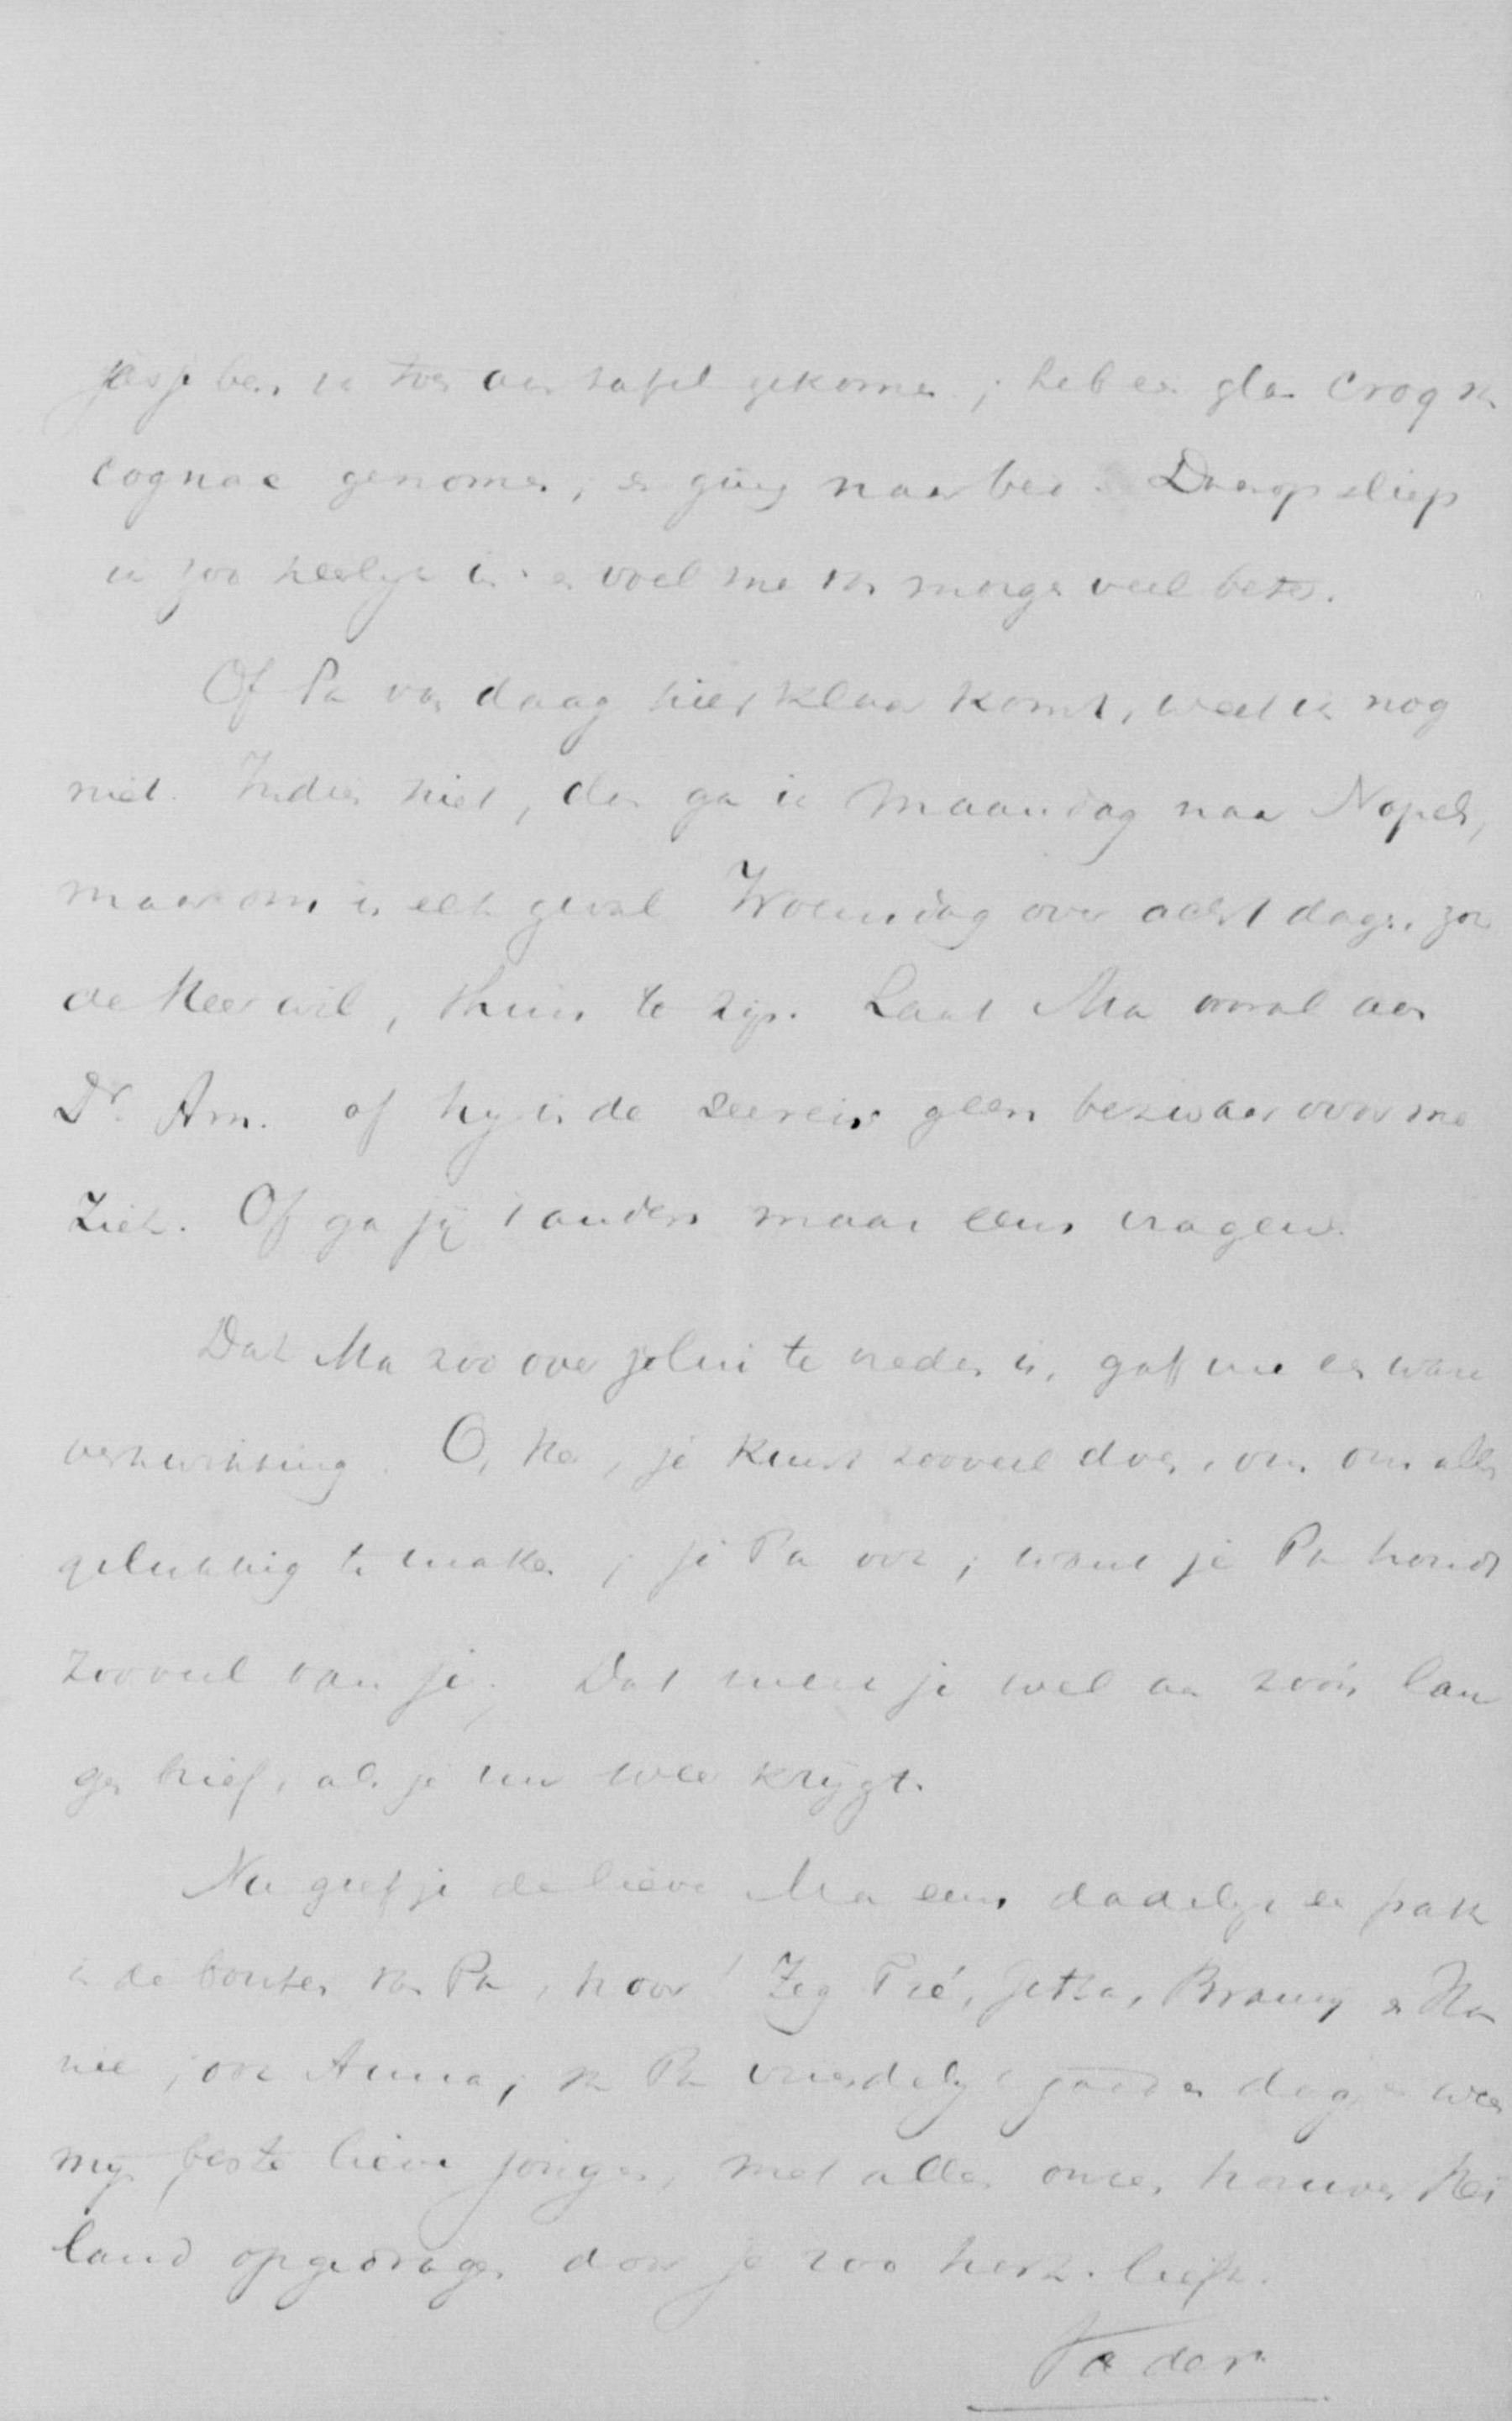 ben ik toen aan tafel gekomen; heb een glas Crog v.
cognac genomen, en ging naar bed. Daarop sliep
ik zoo heerlijk in en voel me van morgen veel beter.
Of Pa van daag hier klaar komt, weet ik nog
niet. Indien niet, dan ga ik Maandag naar Napels,
maar om in elk geval Woensdag over acht dagen, zoo
de Heer wil, thuis te zijn. Laat Ma vooral aan
Dr. Am. of hij in de zeereis geen bezwaar voor me
ziet. Of ga jij 't anders maar eens vragen.
Dat Ma zoo over jelui te vreden is, gaf me een ware
verkwikking. O, , je kunt zooveel doen, om ons allen
gelukkig te maken; je Pa ook; want je Pa houdt
zooveel van je. Dat merk je wel aan zoo'n lan
gen brief, als je nu weer krijgt.
Nu geef je de lieve Ma eens dadelijk een pak
in de bouten van Pa, hoor! Zeg Fré, Jetha, Bramy en Ha
nie, ook Anna, v. Pa vriendelijk goeden dag en wees
mijn beste lieve jongen, met allen onzen trouwen Hei
land opgedragen door je zoo hart. liefh.
Vader